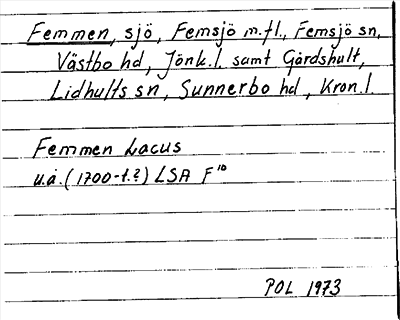 Femmen, sjö, Femsjö m.fl., Femsjö sn,
Västbo hd, Jönk.l. samt Gårdshult,
Lidhults sn, Sunnerbo hd, Kron.l
Femmen Lacus
u.å. (1700-t.?) LSA F¹⁰
POL 1973